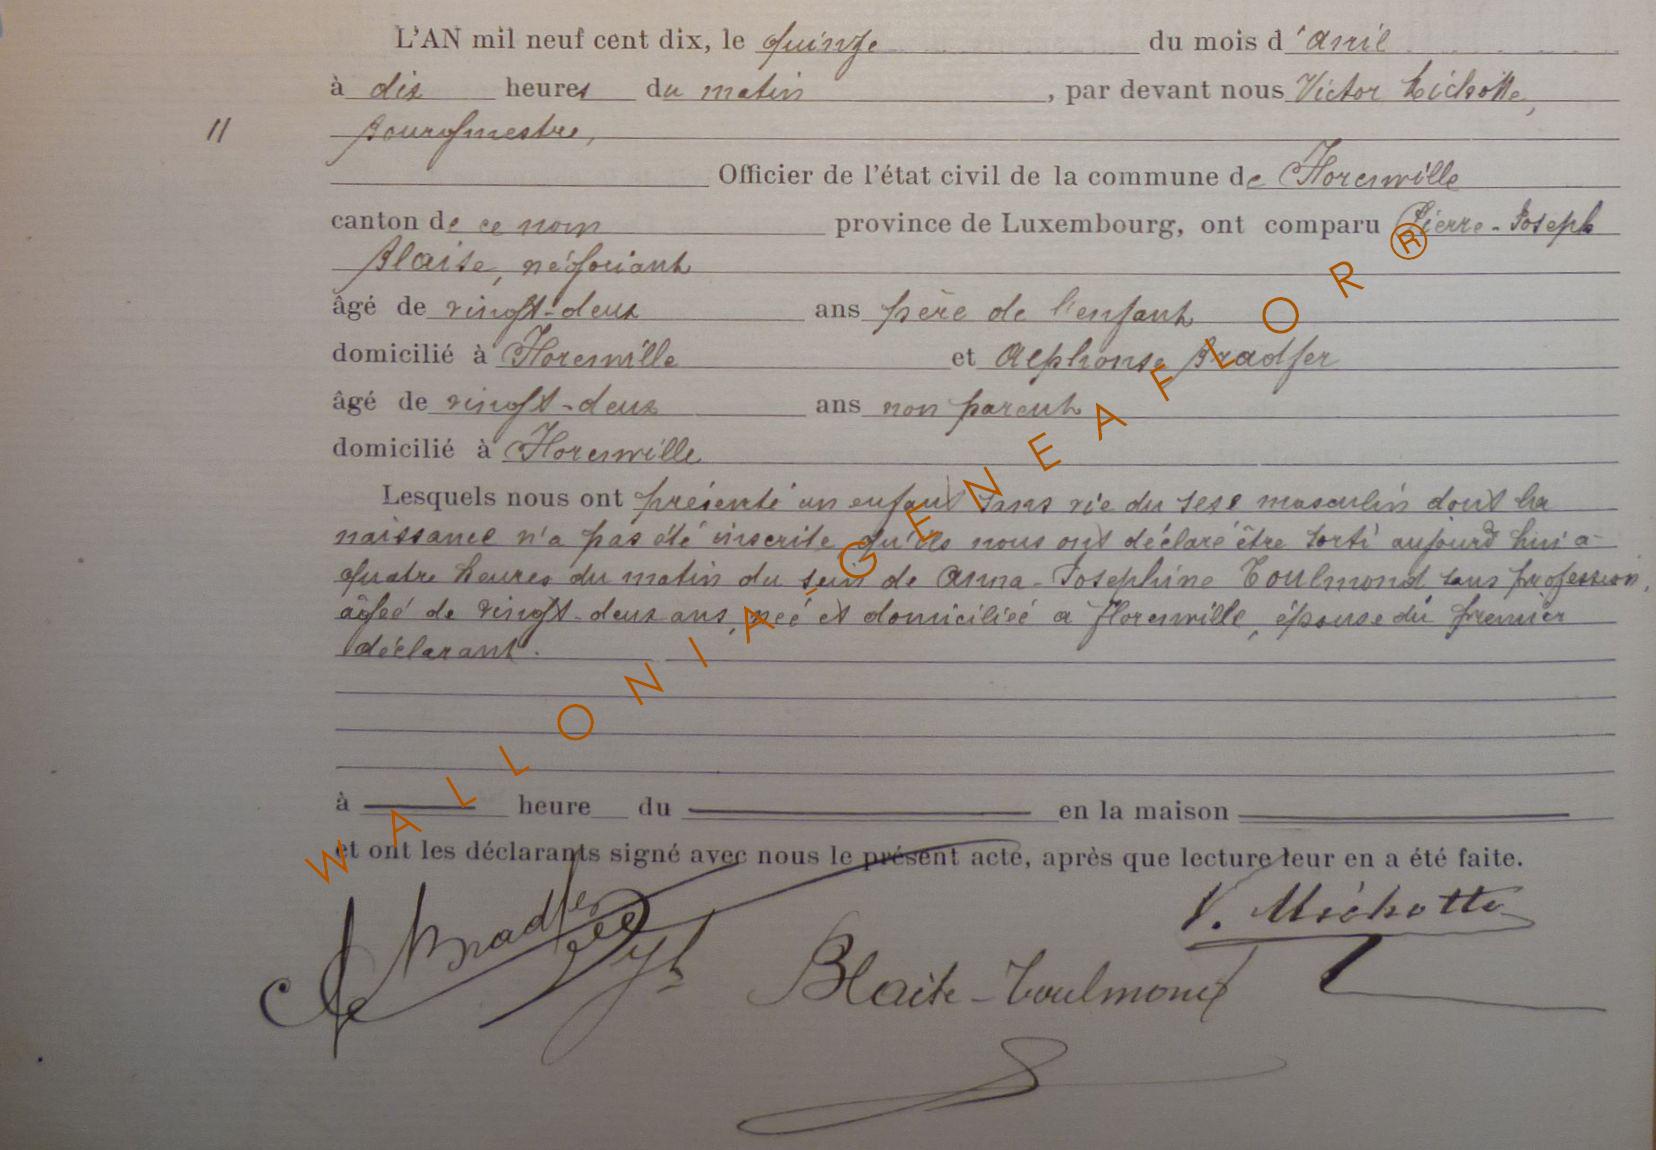 L'AN mil neuf cent dix, le quinze du mois d'avril
à dix heures du matin, par devant nous Victor Michotte,
11 Bourgmestre,
Officier de l'état civil de la commune de Florenville
canton de ce nom province de Luxembourg, ont comparu Pierre-Joseph
Blaise, négociant
âgé de vingt-deux ans père de l'enfant
domicilié à Florenville et Alphonse Bradfer
âgé de vingt-deux ans non parent
domicilié à Florenville
Lesquels nous ont présenté un enfant sans vie du sexe masculin dont la
naissance n'a pas été inscrite qu'ils nous ont déclaré être sorti aujourd'hui à
quatre heures du matin du sein de Anna-Josephine Toulmond, sans profession,
âgée de vingt-deux ans, née et domiciliée à Florenville, épouse du premier
déclarant.
à heure du en la maison
et ont les déclarants signé avec nous le présent acte, après que lecture leur en a été faite.
V. Michotte
Bradfer
Blaise-Toulmond
WALLONIA-GENEAFLOR®